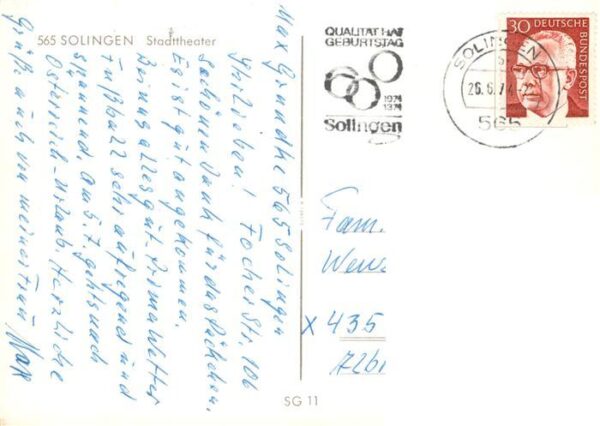 565 SOLINGEN Stadttheater
Max Grundke 565 Solingen
Focherstr. 106
Ihr Lieben!
schönen Dank für das Päckchen.
Es ist gut angekommen.
Bei uns alles gut. Prima Wetter
Fußball sehr aufregend und
spannend. Am 5.7. gehts nach
Österreich-Urlaub. Herzliche
Grüße auch von meiner Frau Max
QUALITÄT HAT
GEBURTSTAG
1974
1374
Solingen
SOLINGEN
26.6.74
565
30 DEUTSCHE BUNDESPOST
Fam.
X 435
SG 11